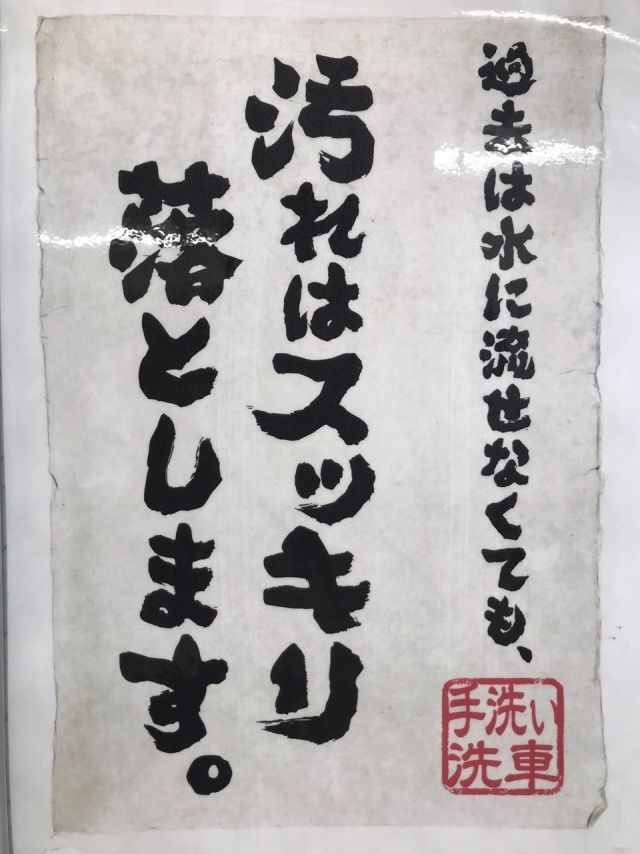 過去は水に流せなくても、
汚れはスッキリ
落とします。
手洗い
洗車